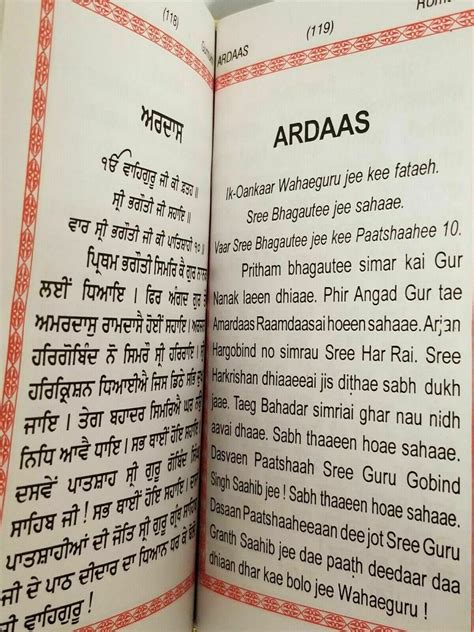 (118)
ਅਰਦਾਸ
ੴ ਵਾਹਿਗੁਰੂ ਜੀ ਕੀ ਫ਼ਤਹ ॥
ਸ੍ਰੀ ਭਗੌਤੀ ਜੀ ਸਹਾਇ ॥
ਵਾਰ ਸ੍ਰੀ ਭਗੌਤੀ ਜੀ ਕੀ ਪਾਤਿਸ਼ਾਹੀ ੧੦ ॥
ਪ੍ਰਿਥਮ ਭਗੌਤੀ ਸਿਮਰਿ ਕੈ ਗੁਰ
ਲਈਂ ਧਿਆਇ । ਫਿਰ ਅੰਗਦ ਗੁਰ
ਅਮਰਦਾਸੁ ਰਾਮਦਾਸੈ ਹੋਈਂ ਸਹਾਇ ।
ਹਰਿਗੋਬਿੰਦ ਨੋ ਸਿਮਰੌ ਸ੍ਰੀ ਹਰਿਰਾਇ ।
ਹਰਿਕ੍ਰਿਸ਼ਨ ਧਿਆਈਐ ਜਿਸ ਡਿਠੈ ਸਭਿ
ਜਾਇ । ਤੇਗ ਬਹਾਦਰ ਸਿਮਰਿਐ ਘਰ
ਨਿਧਿ ਆਵੈ ਧਾਇ । ਸਭ ਥਾਈਂ ਹੋਇ
ਦਸਵੇਂ ਪਾਤਸ਼ਾਹ ਸ੍ਰੀ ਗੁਰੂ ਗੋਬਿੰਦ
ਸਾਹਿਬ ਜੀ ! ਸਭ ਥਾਈਂ ਹੋਇ
ਪਾਤਸ਼ਾਹੀਆਂ ਦੀ ਜੋਤਿ ਸ੍ਰੀ ਗੁਰੂ ਗ੍ਰੰਥ
ਜੀ ਦੇ ਪਾਠ ਦੀਦਾਰ ਦਾ ਧਿਆਨ ਧਰ ਕੇ
ਜੀ ਵਾਹਿਗੁਰੂ !
ARDAAS
(119)
ARDAAS
Ik-Oankaar Wahaeguru jee kee fataeh.
Sree Bhagautee jee sahaae.
Vaar Sree Bhagautee jee kee Paatshaahee 10.
Pritham bhagautee simar kai Gur
Nanak laeen dhiaae. Phir Angad Gur tae
Amardaas Raamdaasai hoeen sahaae. Arjan
Hargobind no simrau Sree Har Rai. Sree
Harkrishan dhiaaeeai jis dithae sabh dukh
jaae. Taeg Bahadar simriai ghar nau nidh
aavai dhaae. Sabh thaaeen hoae sahaae.
Dasvaen Paatshaah Sree Guru Gobind
Singh Saahib jee ! Sabh thaaeen hoae sahaae.
Dasaan Paatshaaheeaan dee jot Sree Guru
Granth Saahib jee dae paaṭh deedaar daa
dhiaan dhar kae bolo jee Wahaeguru !